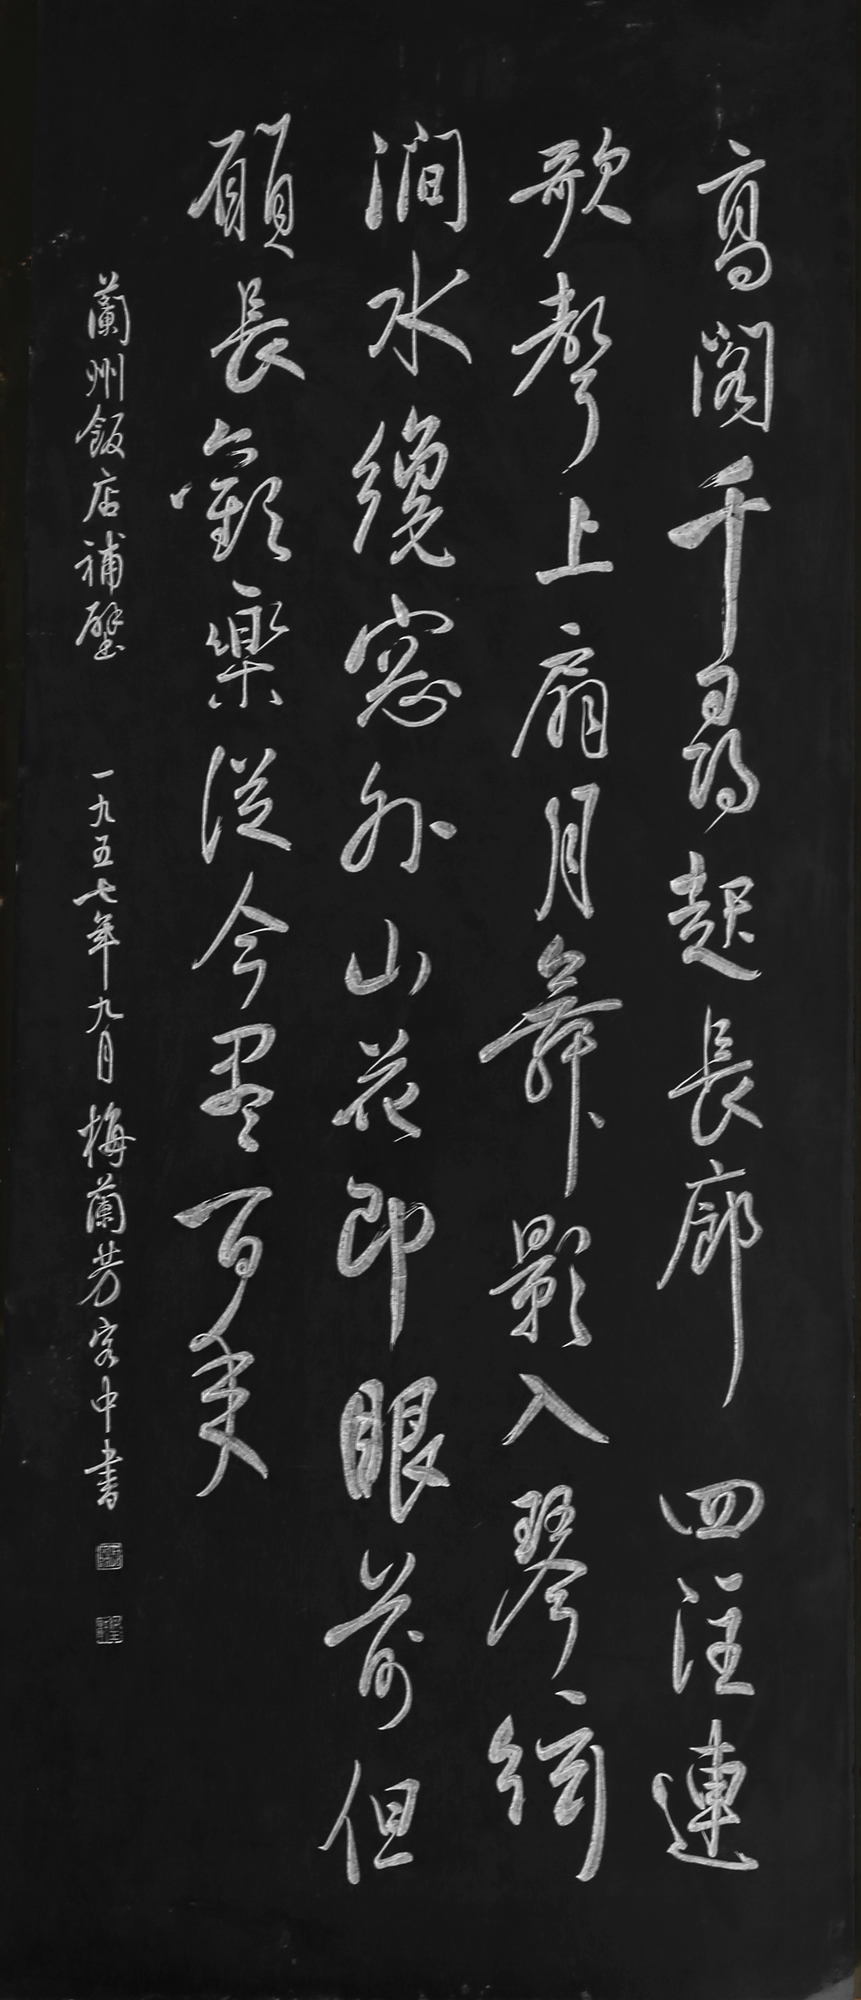 高閣千尋起長廊四注連
歌聲上扇月舞影入琴絃
澗水纔窓外山花即眼前但
願長歡樂從今盡百年
蘭州飯店補壁 一九五七年九月 梅蘭芳客中書